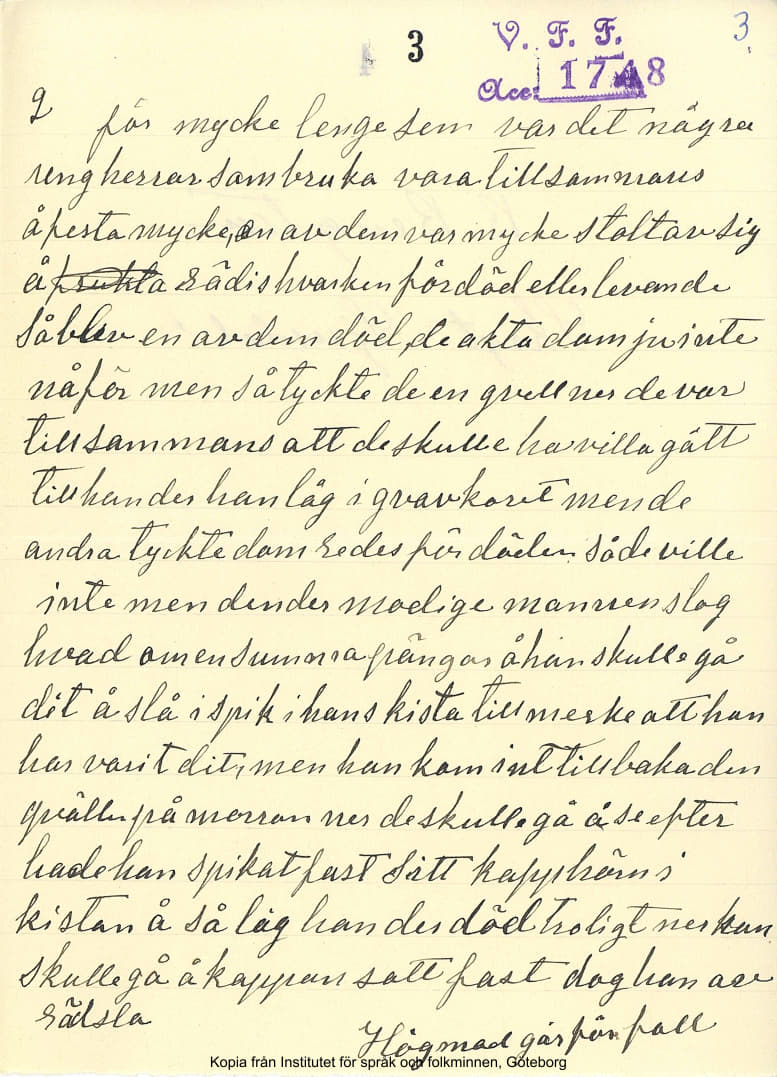 3
V. F. F.
3
Acc: 1748
2 för mycke lenge sem var det några
ungherrar som bruka vara tillsammans
å festa mycke, en av dem var mycke stolt av sig
å rädis hvarken för död eller levande
så blev en av dem död, de akta dom ju inte
nå för men så tyckte de en qvell ner de var
tillsammans att de skulle ha villa gått
till han der han låg i gravkoret men de
andra tyckte dom redes för döden så de ville
inte men den der modige mannen slog
hvad om en summa pängar å han skulle gå
dit å slå i spik i hans kista till merke att han
har varit dit, men han kom int tillbaka den
qvällen på morron ner de skulle gå å se efter
hade han spikat fast sitt kapphörn i
kistan å så låg han der död troligt ner han
skulle gå å kappan satt fast dog han av
rädsla
Högmod går för fall
Kopia från Institutet för språk och folkminnen, Göteborg